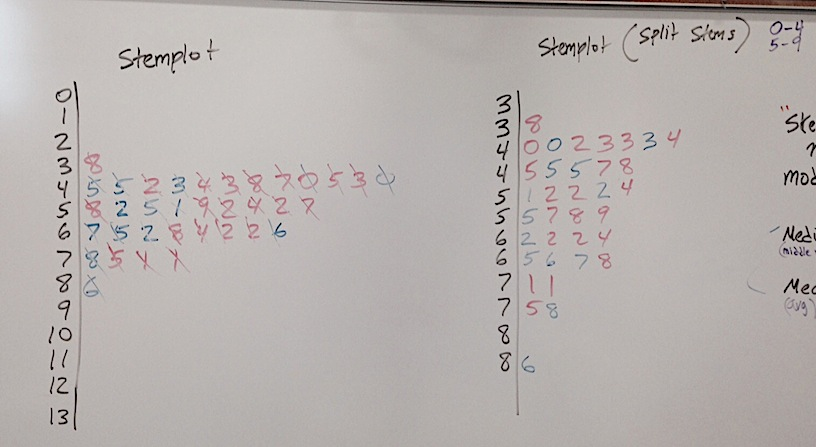 Stemplot
0
1
2
3 8
4 5 5 2 3 4 3 8 7 0 5 3 0
5 8 2 5 1 9 2 4 2 7
6 7 5 2 8 4 2 2 6
7 8 5 1 1
8 6
9
10
11
12
13
Stemplot (Split Stems) 0-4
5-9
3
3 8
4 0 0 2 3 3 3 4
4 5 5 5 7 8
5 1 2 2 2 4
5 5 7 8 9
6 2 2 2 4
6 5 6 7 8
7 1 1
7 5 8
8
8 6
"Ste
mod
Medi
(middle
Mea
(avg)